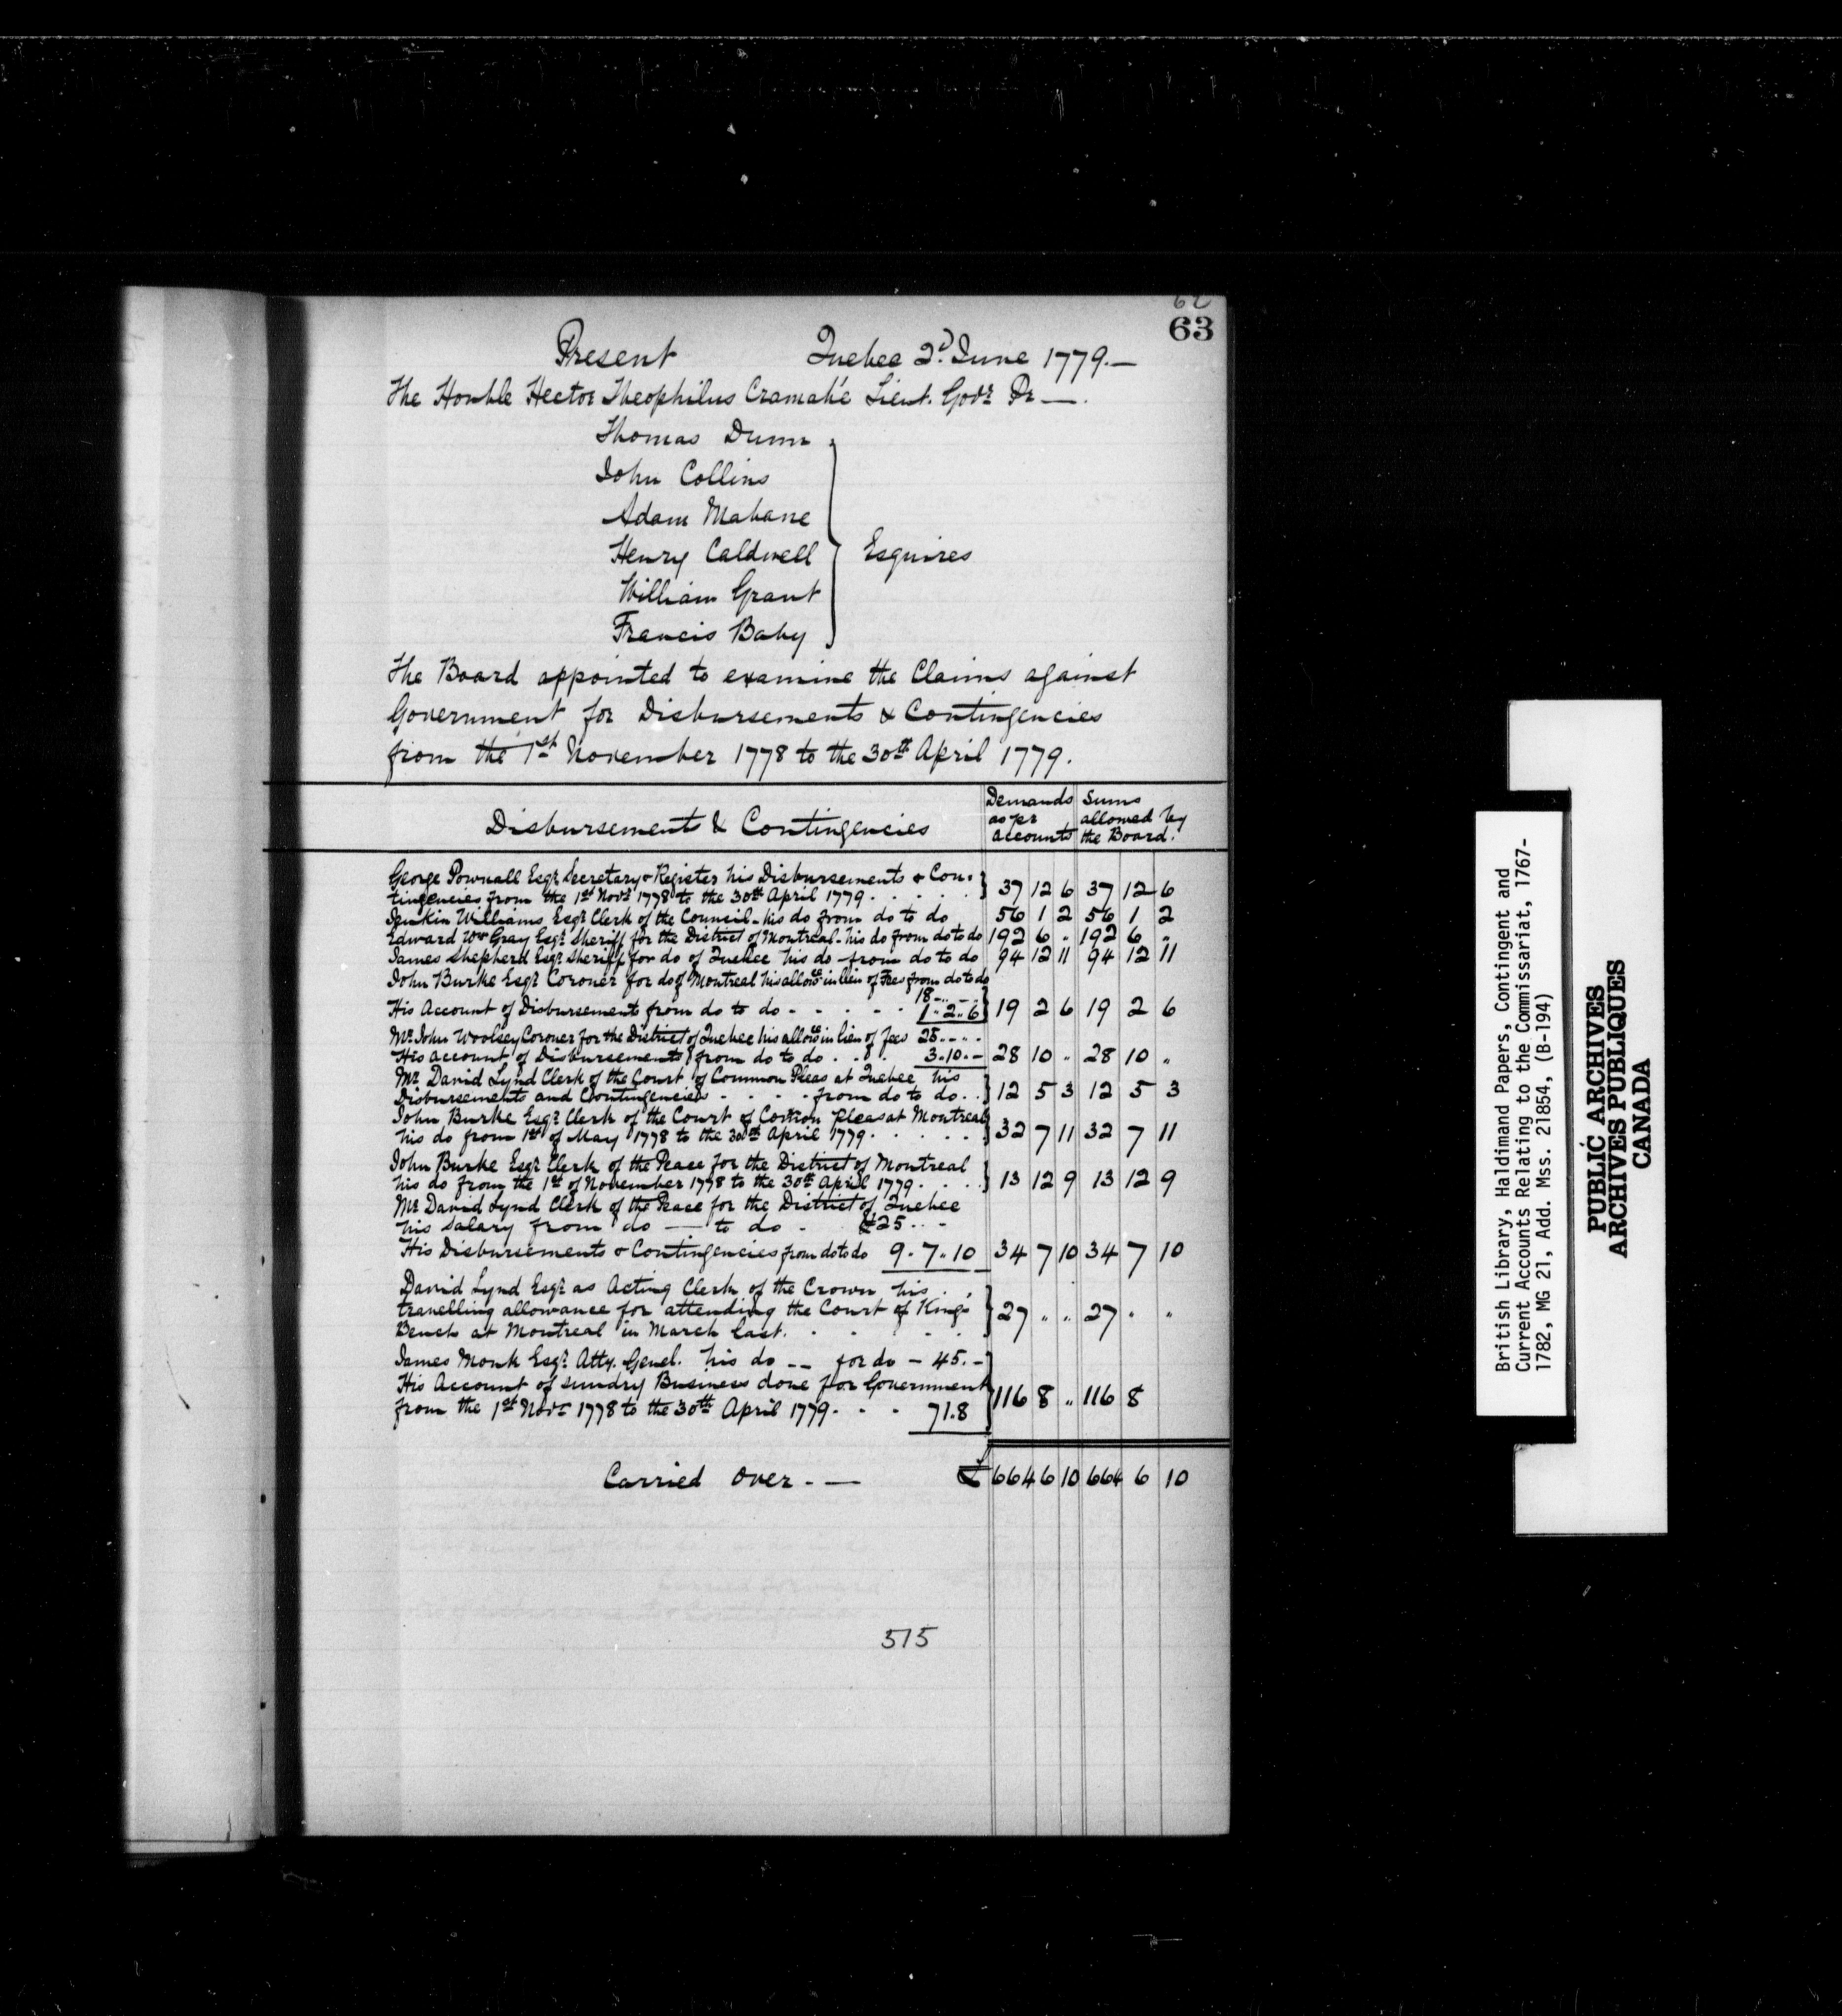 62
63
Present Quebec 2d. June 1779.—
The Honble Hector Theophilus Cramahé Lieut. Govr. Pr —.
Thomas Dunn
John Collins
Adam Mabane
Henry Caldwell Esquires
William Grant
Francis Baby
The Board appointed to examine the Claims against
Government for Disbursements & Contingencies
from the 1st November 1778 to the 30th April 1779.
Disbursements & Contingencies
Demands as pr Accounts
Sums allowed by the Board.
George Pownall Esqr. Secretary & Register his Disbursements & Con-
tingencies from the 1st Novr. 1778 to the 30th April 1779 . . . . . 37 12 6 37 12 6
Jenkin Williams Esqr. Clerk of the Council - his do from do to do 56 1 2 56 1 2
Edward Wm Gray Esqr. Sheriff for the District of Montreal - his do from do to do 192 6 " 192 6 "
James Shepherd Esqr. Sheriff for do of Quebec his do - from do to do 94 12 11 94 12 11
John Burke Esqr. Coroner for do of Montreal his allowce in lieu of Fees from do to do
18 - " - -
His Account of Disbursements from do to do - - - - - 1 " 2 " 6 19 2 6 19 2 6
Mr. John Woolsey Coroner for the District of Quebec his allowce in lieu of fees 25 - - - -
His account of Disbursements from do to do . . . 3 . 10 . - 28 10 " 28 10 "
Mr. David Lynd Clerk of the Court of Common Pleas at Quebec, his
Disbursements and Contingencies - - - - from do to do . . 12 5 3 12 5 3
John Burke Esqr. Clerk of the Court of Comon Pleas at Montreal
his do from 1st of May 1778 to the 30th April 1779 . . . . . 32 7 11 32 7 11
John Burke Esqr. Clerk of the Peace for the District of Montreal
his do from the 1st of November 1778 to the 30th April 1779 . . . . 13 12 9 13 12 9
Mr. David Lynd Clerk of the Peace for the District of Quebec
his salary from do — to do - £25 . . -
His Disbursements & Contingencies from do to do 9 . 7 " 10 34 7 10 34 7 10
David Lynd Esqr. as Acting Clerk of the Crown his
travelling allowance for attending the Court of King's
Bench at Montreal in March last. . . . . 27 " " 27 " "
James Monk Esqr. Atty. Genel. his do -- for do - 45 . -
His Account of sundry Business done for Government
from the 1st Novr 1778 to the 30th April 1779 - - - 71 . 8 116 8 " 116 8
Carried Over - — £ 664 6 10 664 6 10
515
British Library, Haldimand Papers, Contingent and
Current Accounts Relating to the Commissariat, 1767-
1782, MG 21, Add. Mss. 21854, (B-194)
PUBLIC ARCHIVES
ARCHIVES PUBLIQUES
CANADA